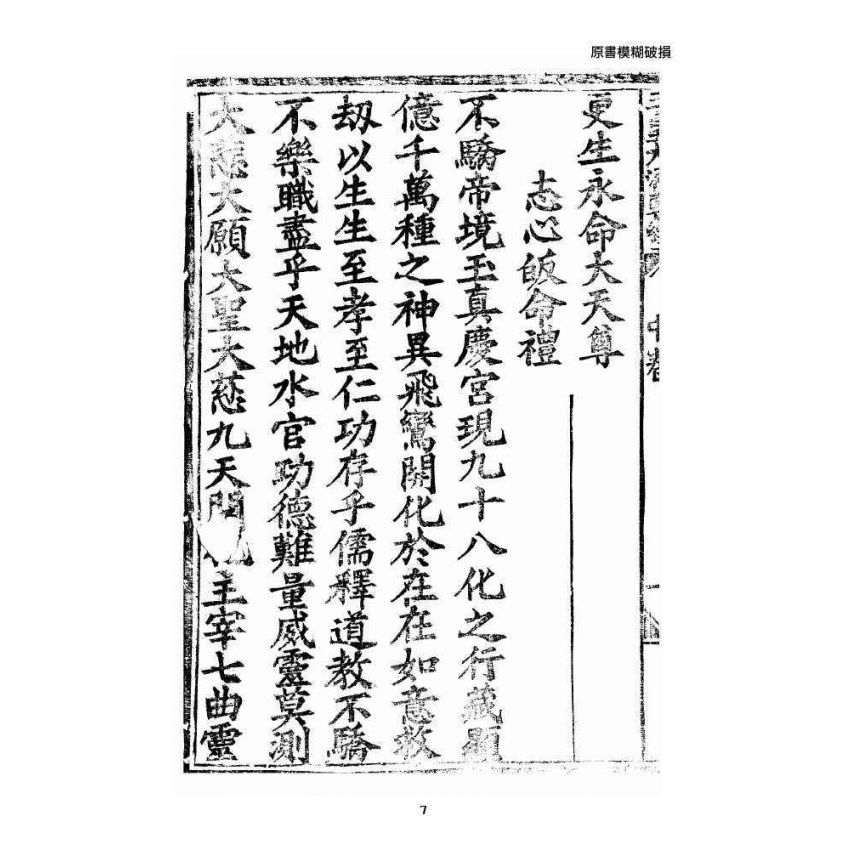 原書模糊破損
中卷
更生永命大天尊
志心皈命禮
不驕帝境玉真慶宮現九十八化之行藏顯
億千萬種之神異飛鸞開化於在在如意救
刼以生生至孝至仁功存乎儒釋道教不驕
不樂職盡乎天地水官功德難量威靈莫測
大悲大願大聖大慈九天開化主宰七曲靈
7